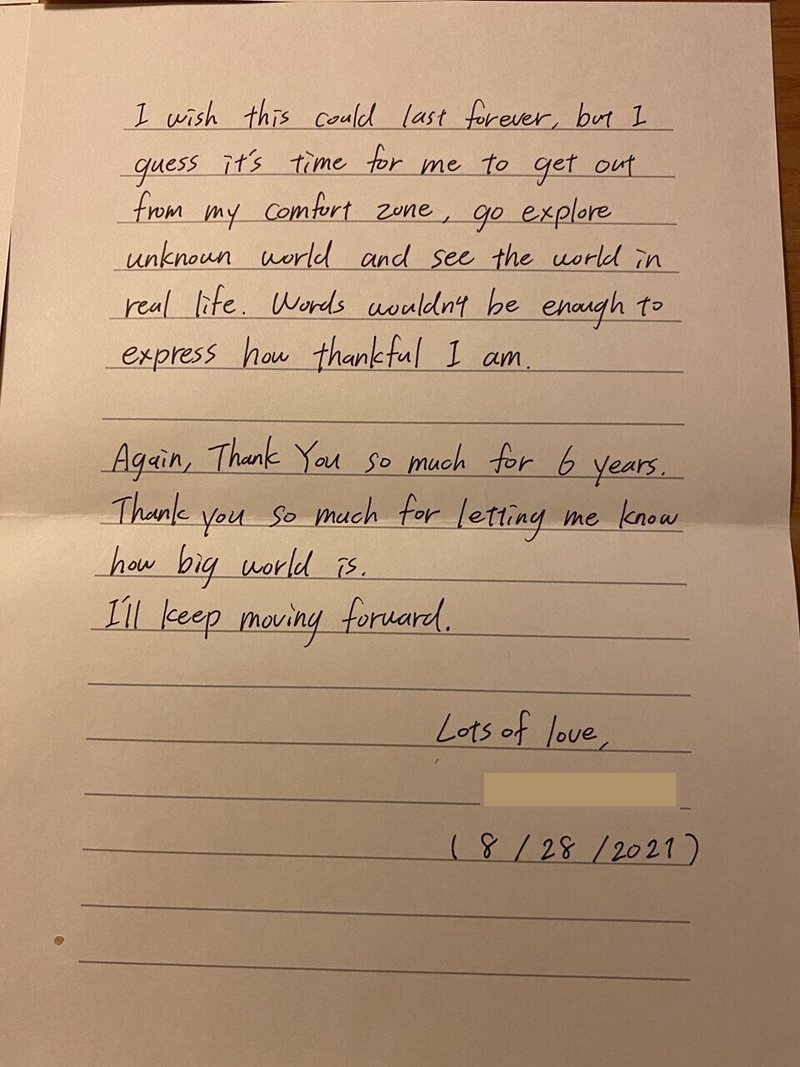 I wish this could last forever, but I
guess it's time for me to get out
from my comfort zone, go explore
unknown world and see the world in
real life. Words wouldn't be enough to
express how thankful I am.
Again, Thank You so much for 6 years.
Thank you so much for letting me know
how big world is.
I'll keep moving forward.
Lots of love,
(8/28/2021)